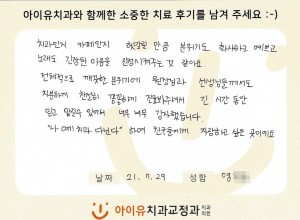 아이유치과와 함께한 소중한 치료 후기를 남겨 주세요 :-)
치과인지 카페인지 헷갈릴 만큼 분위기도 화사하고 예쁘고
노래도 긴장된 마음을 진정시켜주는 것 같아요.
전체적으로 깨끗한 분위기에 원장님과 선생님들께서도
차분하게 친절히 꼼꼼하게 진료봐주셔서 긴 시간 동안
믿고 맡길수 있어서 너무 너무 감사했습니다.
"나 여기 치과 다닌다" 하며 친구들에게 자랑하고 싶은 곳이에요
날짜 21. 7. 29 성함 명
아이유치과교정과 치과의원